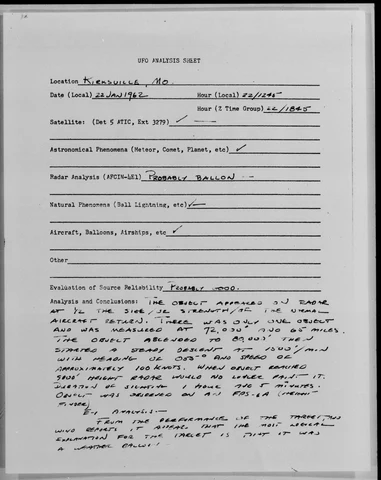 UFO ANALYSIS SHEET
Location KIRKSVILLE, MO.
Date (Local) 22 JAN 1962 Hour (Local) 22/1245
Hour (Z Time Group) 22/1845
Satellite: (Det 5 ATIC, Ext 3279) ✓ —
Astronomical Phenomena (Meteor, Comet, Planet, etc) ✓
Radar Analysis (AFCIN-4E1) PROBABLY BALLON —
Natural Phenomena (Ball Lightning, etc) ✓
Aircraft, Balloons, Airships, etc ✓
Other
Evaluation of Source Reliability PROBABLY GOOD.
Analysis and Conclusions: THE OBJECT APPEARED ON RADAR
AT 1/2 THE SIZE/ STRENGTH/OF THE USUAL
AIRCRAFT RETURN. THERE WAS ONLY ONE OBJECT
AND WAS MEASURED AT 72,000' AND 65 MILES.
THE OBJECT ASCENDED TO 80,000' THEN
STARTED A STEADY DESCENT AT 1500'/MIN
WITH HEADING OF 055° AND SPEED OF
APPROXIMATELY 100 KNOTS. WHEN OBJECT REACHED
5000' HEIGHT RADAR WOULD NO LONGER PAINT IT.
DURATION OF SIGHTING 1 HOUR AND 5 MINUTES.
OBJECT WAS OBSERVED ON AN FPS-6A (HEIGHT
FINDER)
E-1 ANALYSIS—
FROM THE PERFORMANCE OF THE TARGET AND
WIND REPORTS IT APPEARS THAT THE MOST LOGICAL
EXPLANATION FOR THE TARGET IS THAT IT WAS
A WEATHER BALLON!